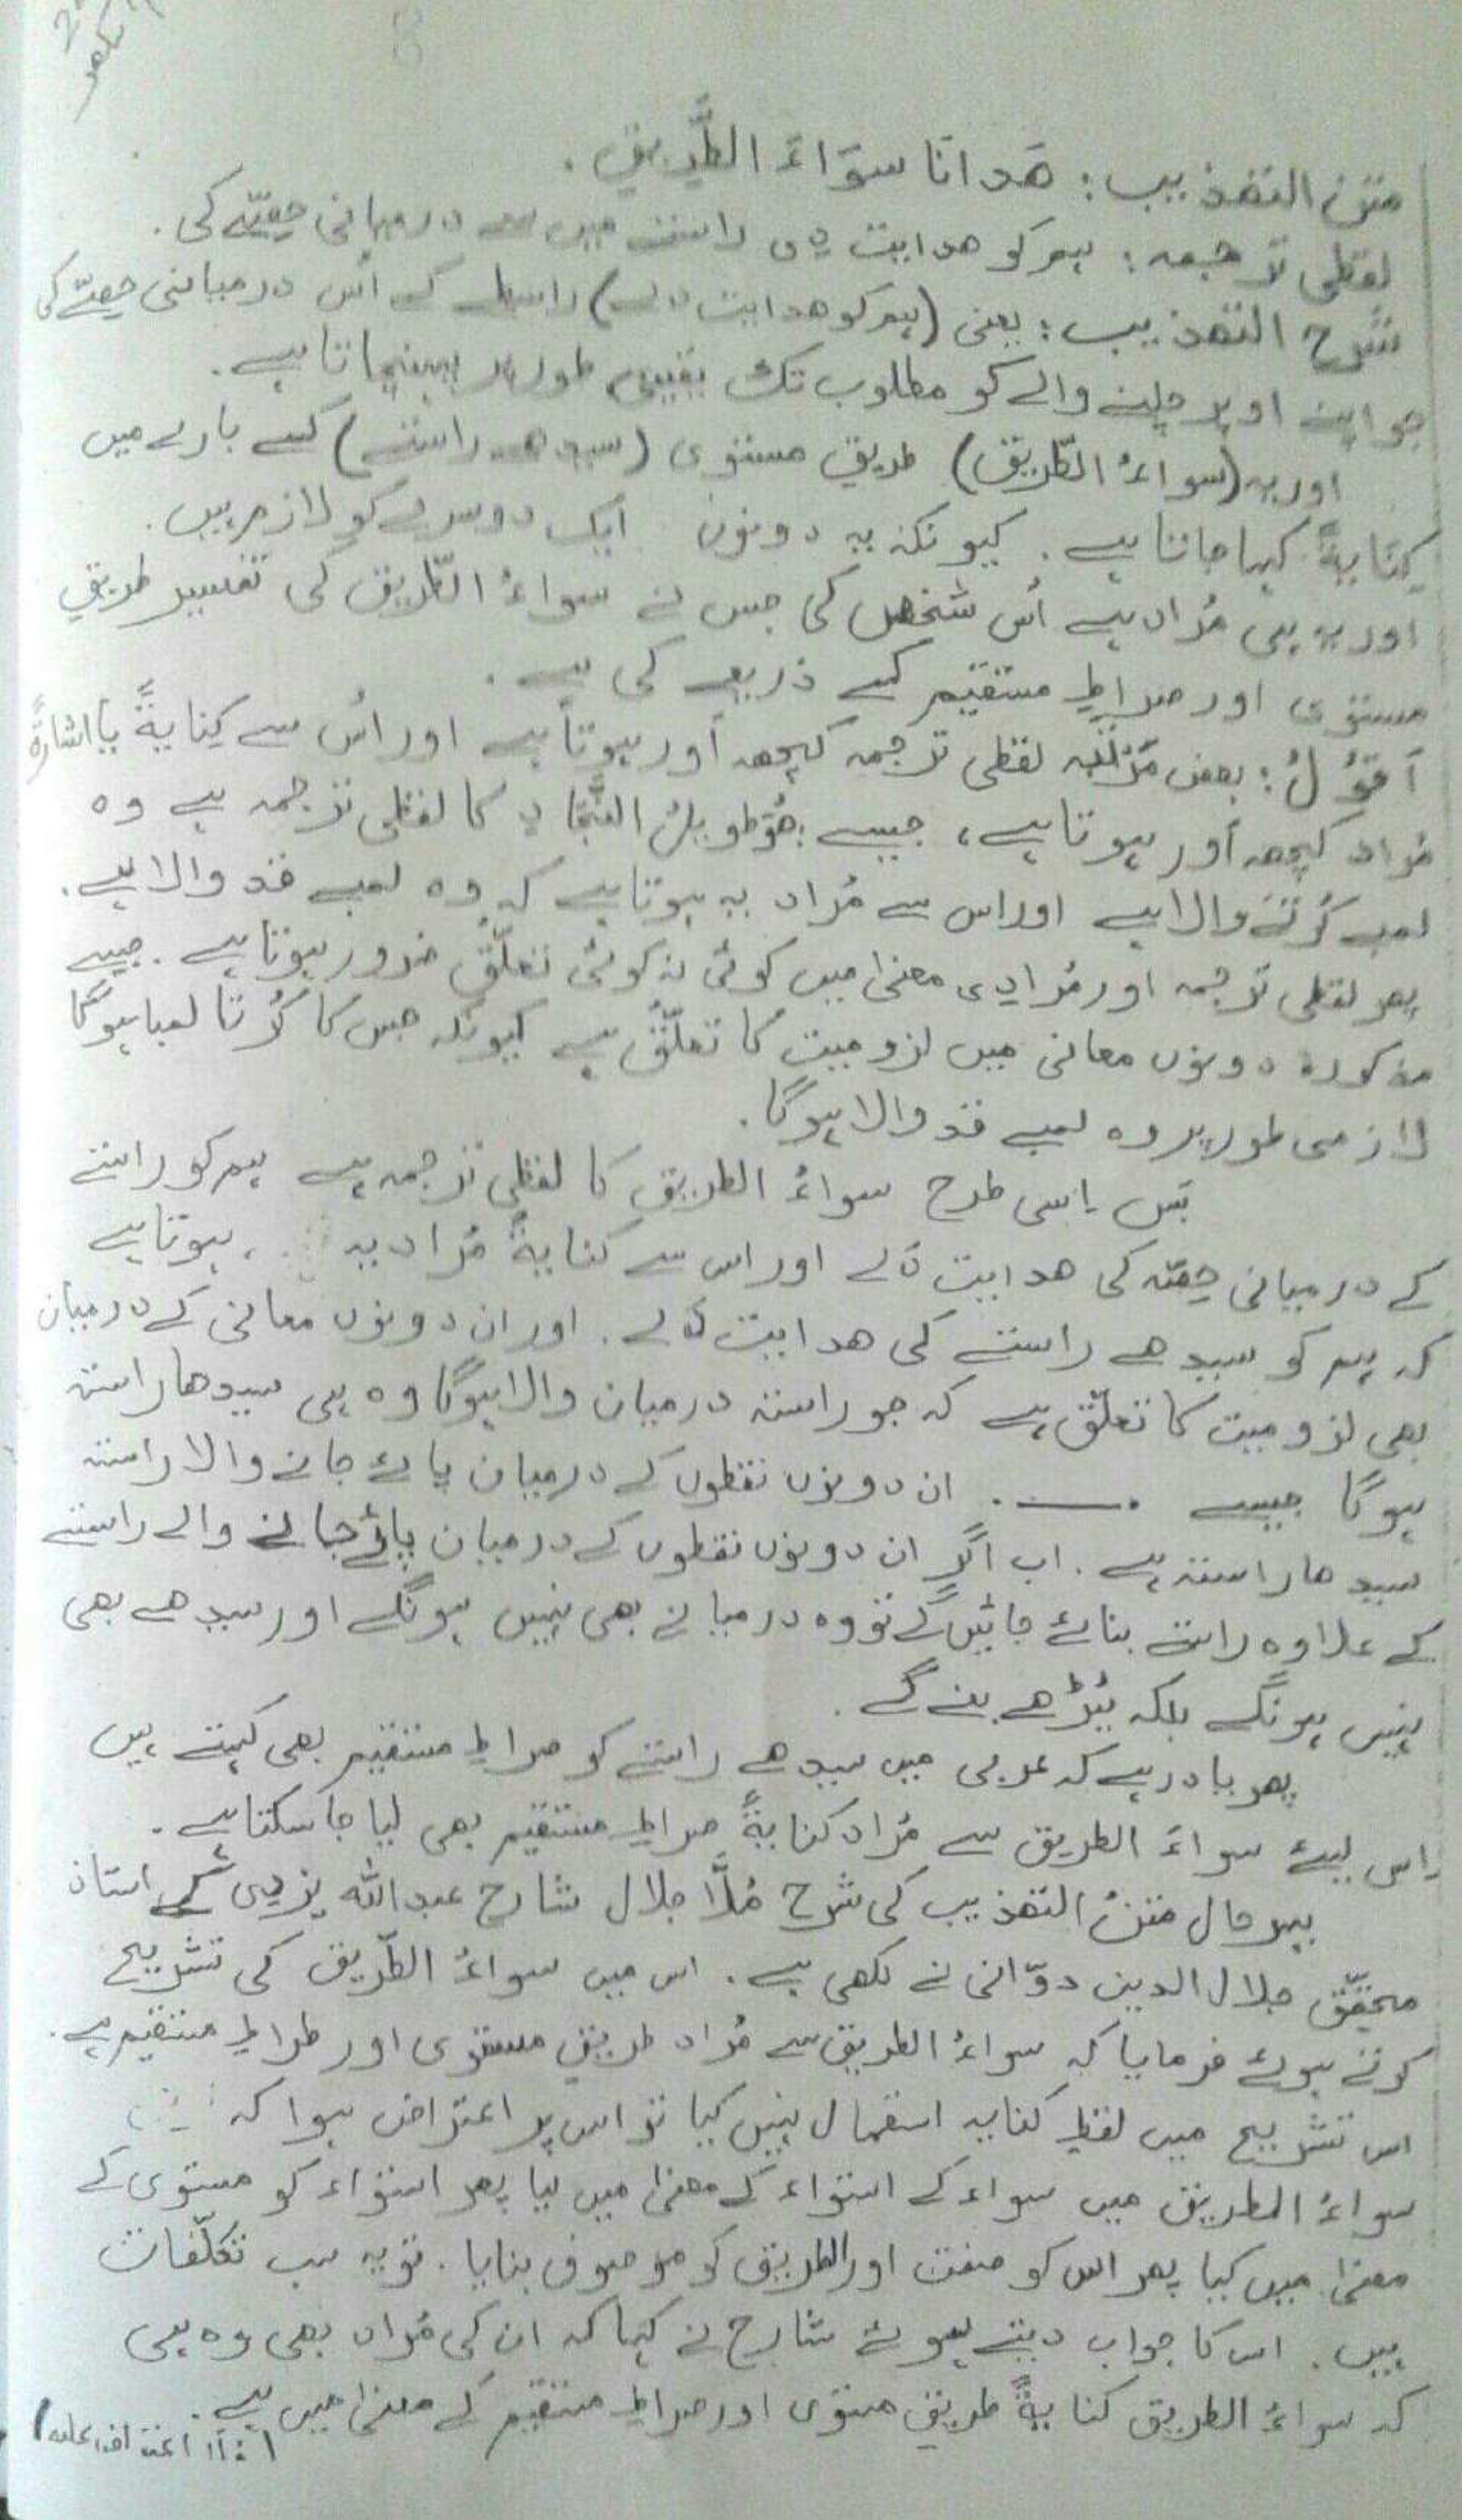 متن التھذیب: ھَدانَا سوَاءَ الطَّرِیقِ.
لفظی ترجمہ: ہم کو ھدایت دی راستے میں سے درمیانی حِصّے کی.
شرح التھذیب: یعنی (ہم کو ھدایت دے) راستے کے اُس درمیانی حِصّے کی
جو اپنے اوپر چلنے والے کو مطلوب تک یقینی طور پر پہنچاتا ہے.
اور یہ (سواءُ الطّریق) طریقِ مستوی (سیدھے راستے) کے بارے میں
کِنایۃً کہا جاتا ہے. کیونکہ یہ دونوں ایک دوسرے کو لازم ہیں.
اور یہ ہی مُراد ہے اُس شخص کی جس نے سواءُ الطّریق کی تفسیر طریقِ
مستوی اور صراطِ مستقیم کے ذریعے کی ہے.
اَقُوْلُ: بعض مَرتَبہ لفظی ترجمہ کچھ اَور ہوتا ہے اور اُس سے کِنایۃً یا اشارۃً
مُراد کچھ اَور ہوتا ہے، جیسے: ھُوَ طویلُ النَّجَادِ کا لفظی ترجمہ ہے وہ
لمبے کُرتے والا ہے اور اس سے مُراد یہ ہوتا ہے کہ وہ لمبے قد والا ہے.
پھر لفظی ترجمہ اور مُرادِی معنیٰ میں کوئی نہ کوئی تعلّق ضرور ہوتا ہے. جیسے
مذکورہ دونوں معانی میں لزومیت کا تعلّق ہے کیونکہ جس کا کُرتا لمبا ہوگا
لازمی طور پر وہ لمبے قد والا ہوگا.
بَس اِسی طرح سواءُ الطریق کا لفظی ترجمہ ہے ہم کو راستے
کے درمیانی حِصّہ کی ھدایت دے اور اس سے کنایۃً مُراد یہ ہوتا ہے
کہ ہم کو سیدھے راستے کی ھدایت دے. اور ان دونوں معانی کے درمیان
بھی لزومیت کا تعلّق ہے کہ جو راستہ درمیان والا ہوگا وہ ہی سیدھا راستہ
ہوگا جیسے .ـــــ. ان دونوں نقطوں کے درمیان پائے جانے والا راستہ
سیدھا راستہ ہے. اب اگر ان دونوں نقطوں کے درمیان پائے جانے والے راستے
کے علاوہ راستے بنائے جائیں گے تو وہ درمیانے بھی نہیں ہونگے اور سیدھے بھی
نہیں ہونگے بلکہ ٹیڑھے بنے گے.
پھر یاد رہے کہ عربی میں سیدھے راستے کو صراطِ مستقیم بھی کہتے ہیں
اِس لیئے سواءَ الطریق سے مُراد کنایۃً صراطِ مستقیم بھی لیا جا سکتا ہے.
بہرحال متنُ التھذیب کی شرح مُلَّا جلال شارح عبداللہ یزدی کے استاد
محقّق جلال الدین دوّانی نے لکھی ہے. اس میں سواءُ الطّریق کی تشریح
کرتے ہوئے فرمایا کہ سواءُ الطریق سے مُراد طریقِ مستوی اور صراطِ مستقیم ہے.
اس تشریح میں لفظِ کنایہ استعمال نہیں کیا تو اس پر اعتراض ہوا کہ
سواءُ الطریق میں سواء کے استواء کے معنیٰ میں لیا پھر استواء کو مستوی کے
معنیٰ میں کیا پھر اس کو صفت اور الطریق کو موصوف بنایا. تو یہ سب تکلّفات
ہیں. اس کا جواب دیتے ہوئے شارح نے کہا کہ ان کی مُراد بھی وہ ہی
کہ سواءُ الطریق کنایۃً طریقِ مستوی اور صراطِ مستقیم کے معنیٰ میں ہے.